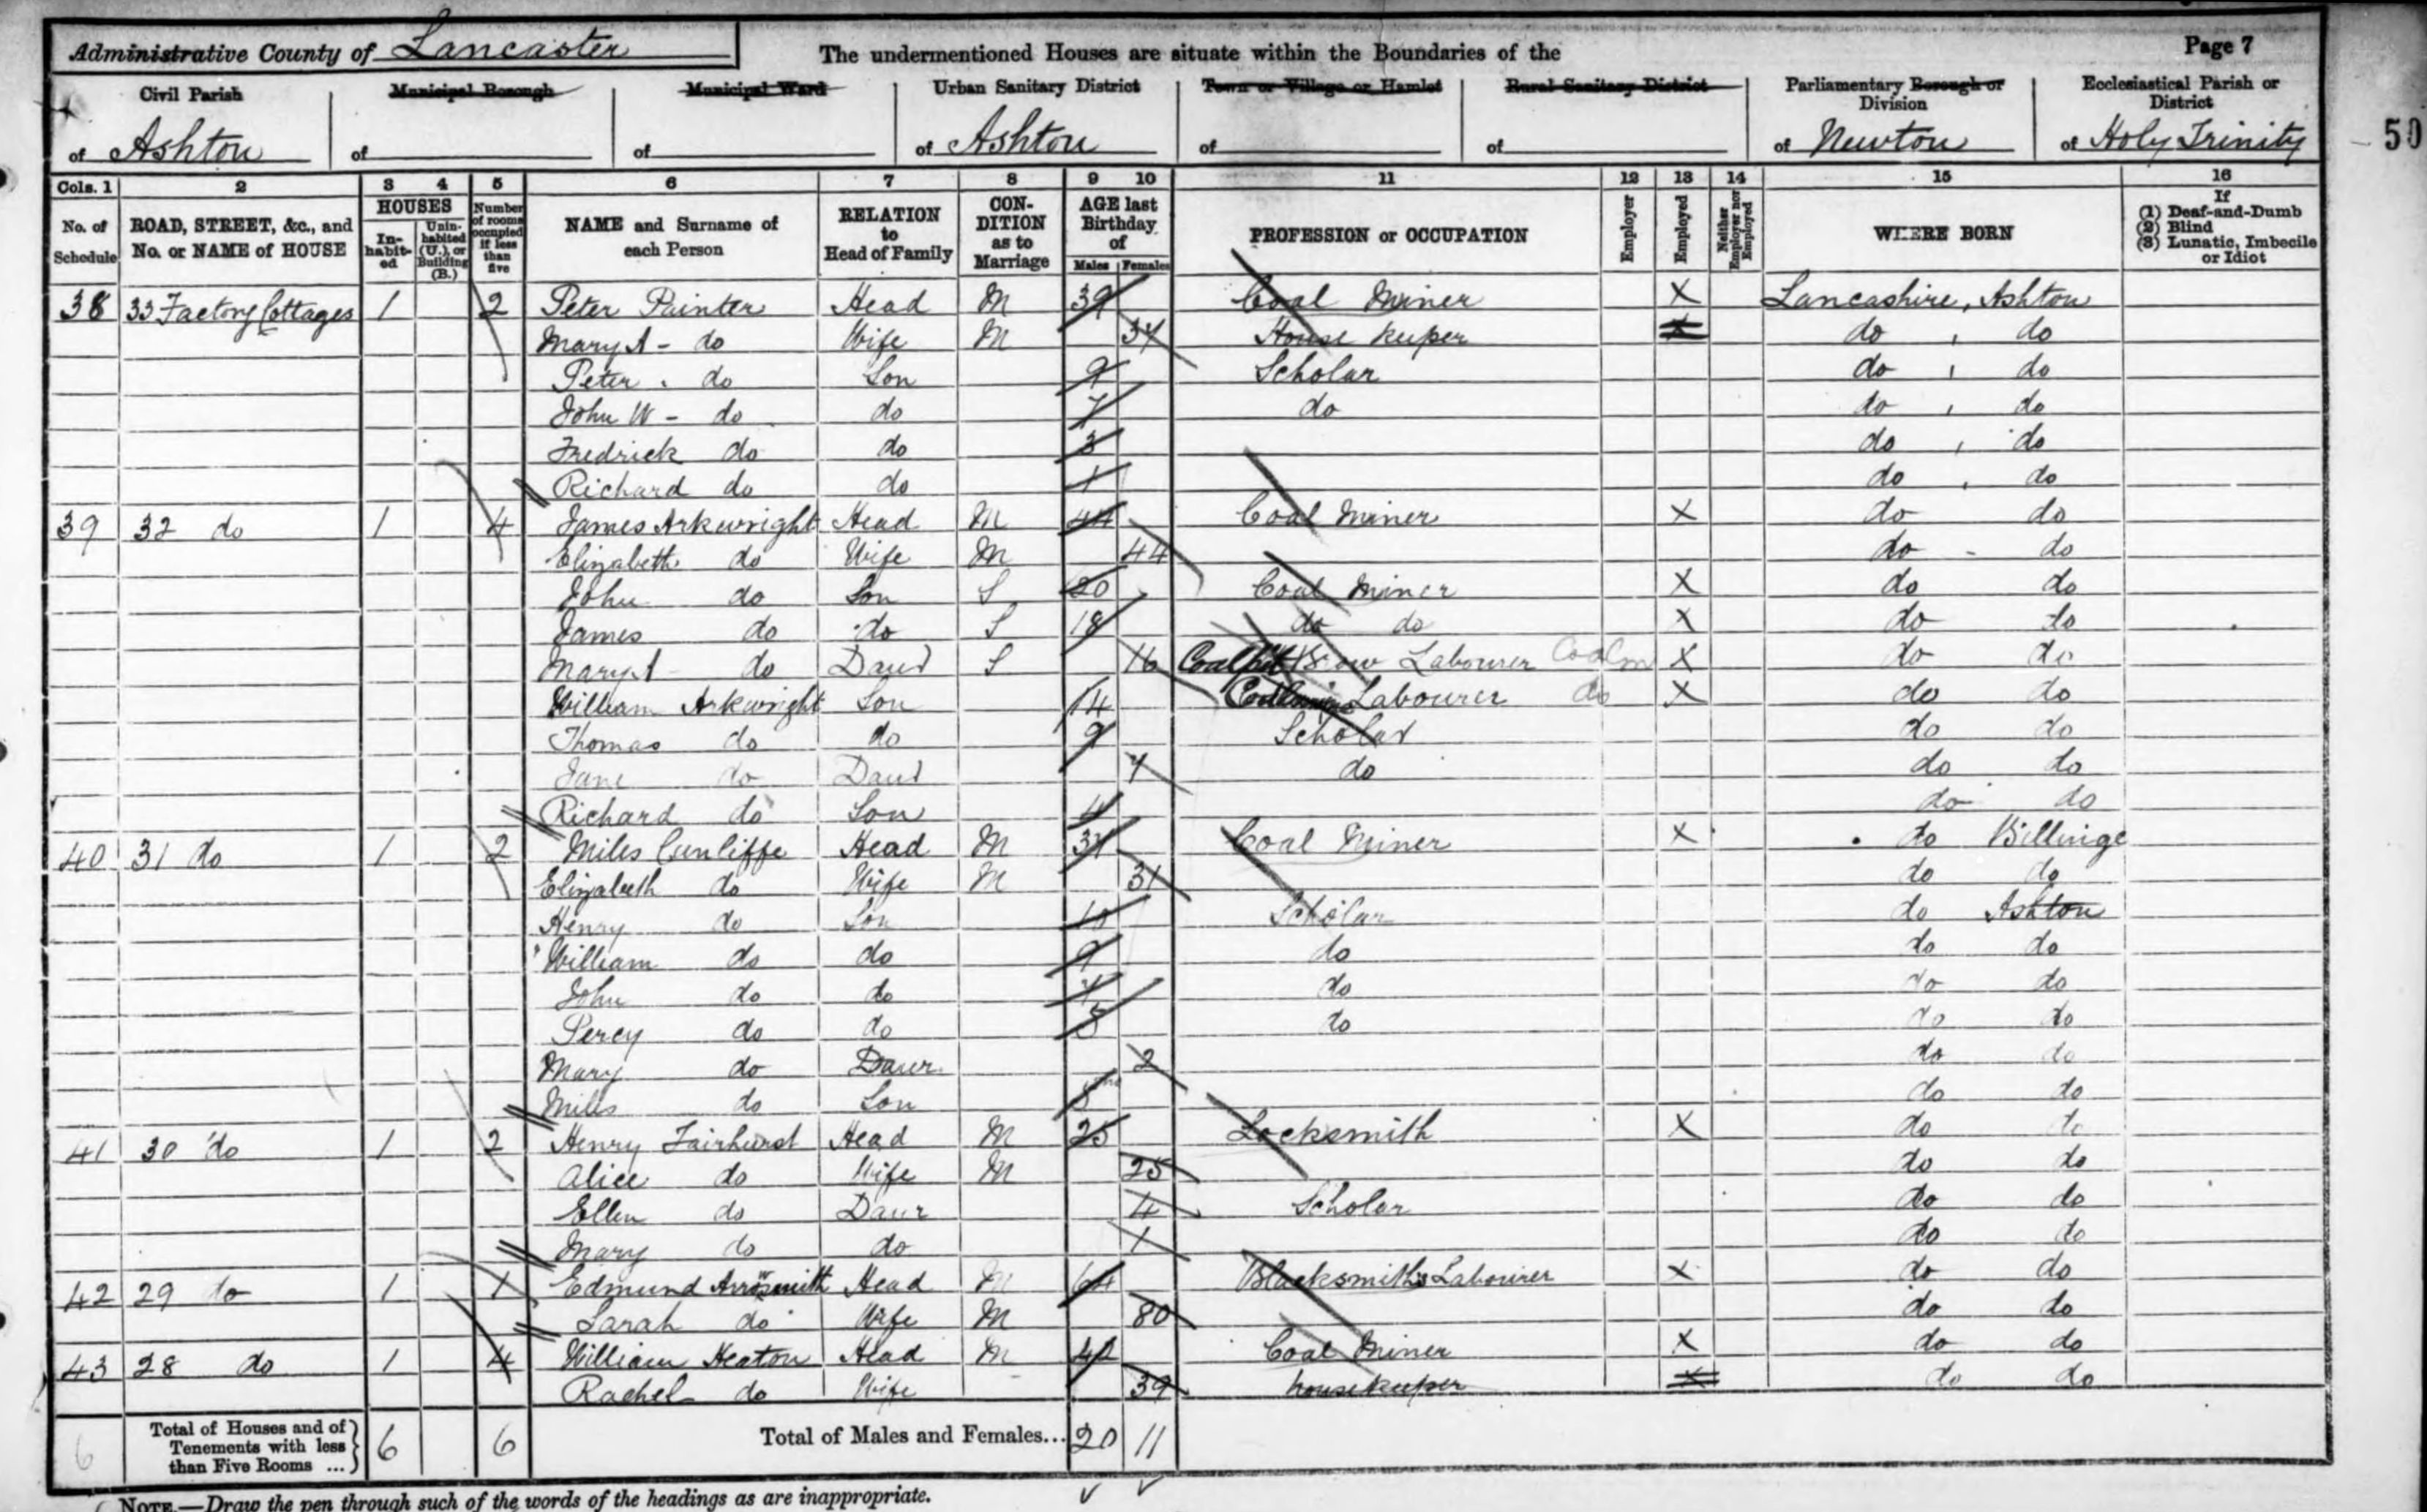 Administrative County of Lancaster The undermentioned Houses are situate within the Boundaries of the Page 7
Civil Parish Municipal Borough Municipal Ward Urban Sanitary District Town or Village or Hamlet Rural Sanitary District Parliamentary Borough or Division Ecclesiastical Parish or District
of Ashton of of of Ashton of of of Newton of Holy Trinity 50
Cols. 1 2 3 4 5 6 7 8 9 10 11 12 13 14 15 16
No. of Schedule ROAD, STREET, &c., and No. or NAME of HOUSE HOUSES In-habit-ed Unin-habited (U.), or Building (B.) Number of rooms occupied if less than five NAME and Surname of each Person RELATION to Head of Family CON-DITION as to Marriage AGE last Birthday of Males Females PROFESSION or OCCUPATION Employer Employed Neither Employer nor Employed WHERE BORN If (1) Deaf-and-Dumb (2) Blind (3) Lunatic, Imbecile or Idiot
38 33 Factory Cottages 1 2 Peter Painter Head M 39 Coal Miner X Lancashire, Ashton
Mary A - do Wife M 34 House keeper X do , do
Peter . do Son 9 Scholar do , do
John W - do do 7 do do , do
Fredrick do do 3 do , do
Richard do do 1 do , do
39 32 do 1 4 James Arkwright Head M 44 Coal Miner X do do
Elizabeth do Wife M 44 do - do
John do Son S 20 Coal Miner X do do
James do do S 18 do do X do do
Mary A do Daur S 16 Coal Pit Brow Labourer Coal m X do do
William Arkwright Son 14 Labourer do X do do
Thomas do do 9 Scholar do do
Jane do Daur 7 do do do
Richard do Son 4 do do
40 31 do 1 2 Miles Cunliffe Head M Coal Miner X do Billinge
Elizabeth do Wife M 31 do do
Henry do Son 10 Scholar do Ashton
William do do 9 do do do
John do do 7 do do do
Percy do do 5 do do do
Mary do Daur 2 do do
Miles do Son 8 mo do do
41 30 do 1 2 Henry Fairhurst Head M 25 Locksmith X do do
Alice do Wife M 25 do do
Ellen do Daur 4 Scholar do do
Mary do do 1 do do
42 29 do 1 1 Edmund Arrowsmith Head M 64 Blacksmith's Labourer X do do
Sarah do Wife M 80 do do
43 28 do 1 4 William Heaton Head M 42 Coal Miner X do do
Rachel do Wife 39 housekeeper X do do
6 Total of Houses and of Tenements with less than Five Rooms ... 6 6 Total of Males and Females... 20 11
NOTE.—Draw the pen through such of the words of the headings as are inappropriate.